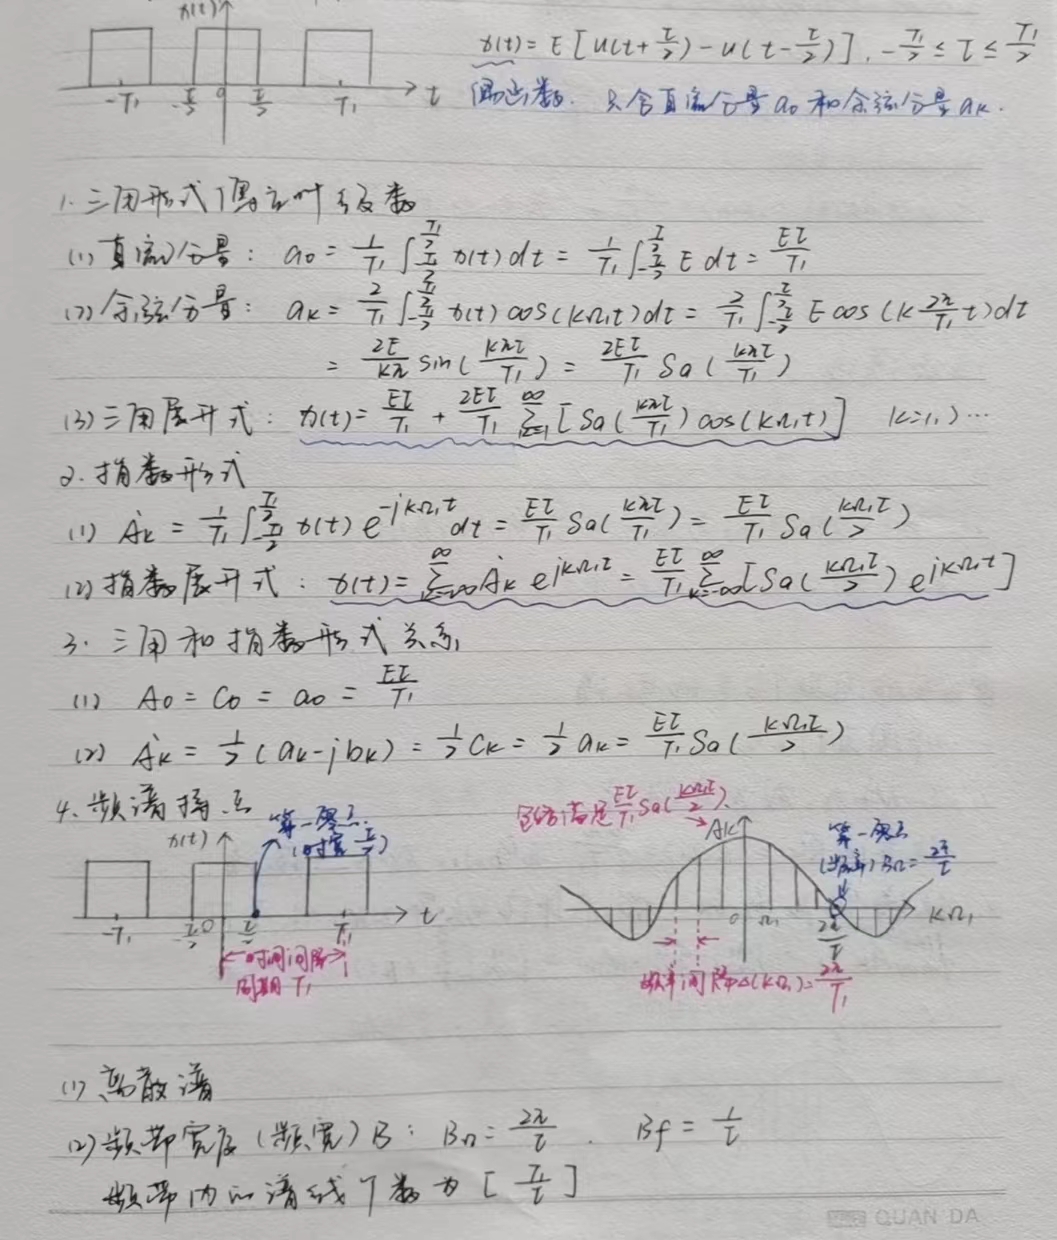 x(t)
-T₁ -τ/2 0 τ/2 T₁ t
x(t) = E[u(t+τ/2) - u(t-τ/2)], -T₁/2 ≤ τ ≤ T₁/2
偶函数. 只含直流分量a₀和余弦分量aₖ.
1. 三角形式傅立叶级数
(1) 直流分量: a₀ = 1/T₁ ∫_{-T₁/2}^{T₁/2} x(t)dt = 1/T₁ ∫_{-τ/2}^{τ/2} E dt = Eτ/T₁
(2) 余弦分量: aₖ = 2/T₁ ∫_{-T₁/2}^{T₁/2} x(t)cos(kΩ₁t)dt = 2/T₁ ∫_{-τ/2}^{τ/2} E cos(k 2π/T₁ t)dt
= 2E/kπ sin(kπτ/T₁) = 2Eτ/T₁ Sa(kπτ/T₁)
(3) 三角展开式: x(t) = Eτ/T₁ + 2Eτ/T₁ ∑_{k=1}^{∞} [Sa(kπτ/T₁)cos(kΩ₁t)] k=1,2…
2. 指数形式
(1) Ȧₖ = 1/T₁ ∫_{-T₁/2}^{T₁/2} x(t)e^{-jkΩ₁t}dt = Eτ/T₁ Sa(kπτ/T₁) = Eτ/T₁ Sa(kΩ₁τ/2)
(2) 指数展开式: x(t) = ∑_{k=-∞}^{∞} Ȧₖ e^{jkΩ₁t} = Eτ/T₁ ∑_{k=-∞}^{∞} [Sa(kΩ₁τ/2) e^{jkΩ₁t}]
3. 三角和指数形式关系
(1) A₀ = C₀ = a₀ = Eτ/T₁
(2) Ȧₖ = 1/2(aₖ-jbₖ) = 1/2 Cₖ = 1/2 aₖ = Eτ/T₁ Sa(kΩ₁τ/2)
4. 频谱特点
x(t)
第一零点
(时宽 τ/2)
-T₁ -τ/2 0 τ/2 T₁ t
时间间隔
周期 T₁
包络满足 Eτ/T₁ Sa(kΩ₁τ/2)
Ȧₖ
第一零点
(频率) B_Ω = 2π/τ
0 Ω₁ 2π/τ kΩ₁
频率间隔Δ(kΩ₁)=2π/T₁
(1) 离散谱
(2) 频带宽度(频宽)B: B_Ω = 2π/τ. B_f = 1/τ
频带内的谱线个数为 [T₁/τ]
QUAN DA